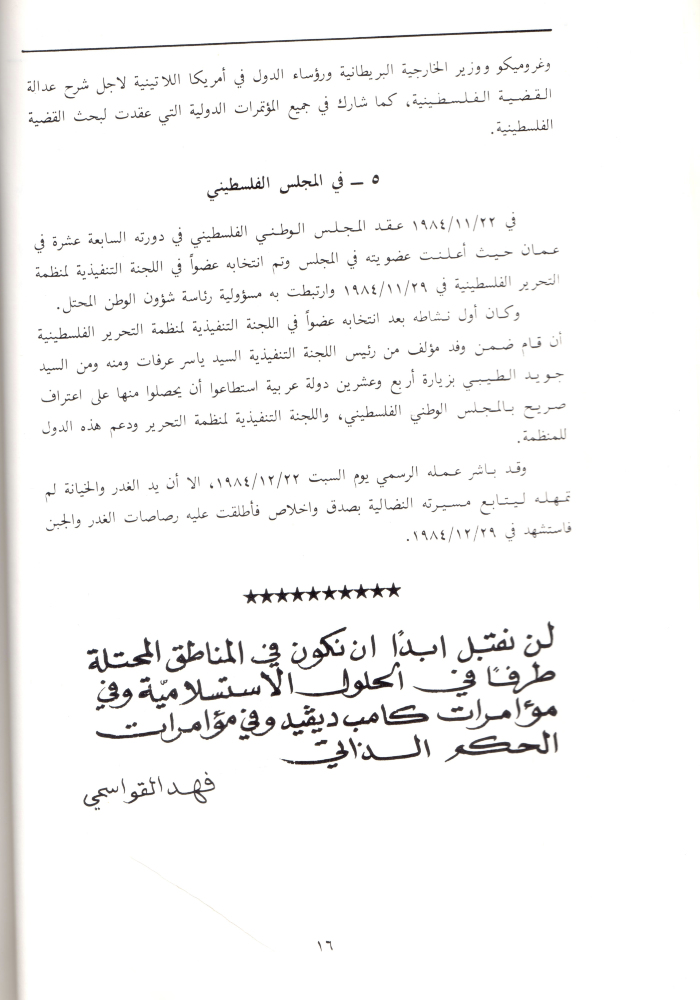 وغروميكو ووزير الخارجية البريطانية ورؤساء الدول في أمريكا اللاتينية لاجل شرح عدالة
القضية الفلسطينية، كما شارك في جميع المؤتمرات الدولية التي عقدت لبحث القضية
الفلسطينية.
٥ ـ في المجلس الفلسطيني
في ١٩٨٤/١١/٢٢ عقد المجلس الوطني الفلسطيني في دورته السابعة عشرة في
عمان حيث أعلنت عضويته في المجلس وتم انتخابه عضواً في اللجنة التنفيذية لمنظمة
التحرير الفلسطينية في ١٩٨٤/١١/٢٩ وارتبطت به مسؤولية رئاسة شؤون الوطن المحتل.
وكان أول نشاطه بعد انتخابه عضواً في اللجنة التنفيذية لمنظمة التحرير الفلسطينية
أن قام ضمن وفد مؤلف من رئيس اللجنة التنفيذية السيد ياسر عرفات ومنه ومن السيد
جويد الطيبي بزيارة أربع وعشرين دولة عربية استطاعوا أن يحصلوا منها على اعتراف
صريح بالمجلس الوطني الفلسطيني، واللجنة التنفيذية لمنظمة التحرير ودعم هذه الدول
للمنظمة.
وقد باشر عمله الرسمي يوم السبت ١٩٨٤/١٢/٢٢، الا أن يد الغدر والخيانة لم
تمهله ليتابع مسيرته النضالية بصدق واخلاص فأطلقت عليه رصاصات الغدر والجبن
فاستشهد في ١٩٨٤/١٢/٢٩.
★★★★★★★★★★
لن نقبل ابدًا ان نكون في المناطق المحتلة
طرفًا في الحلول الاستسلاميّة وفي
مؤامرات كامب ديڤيد وفي مؤامرات
الحكم الذاتي
فهد القواسمي
١٦